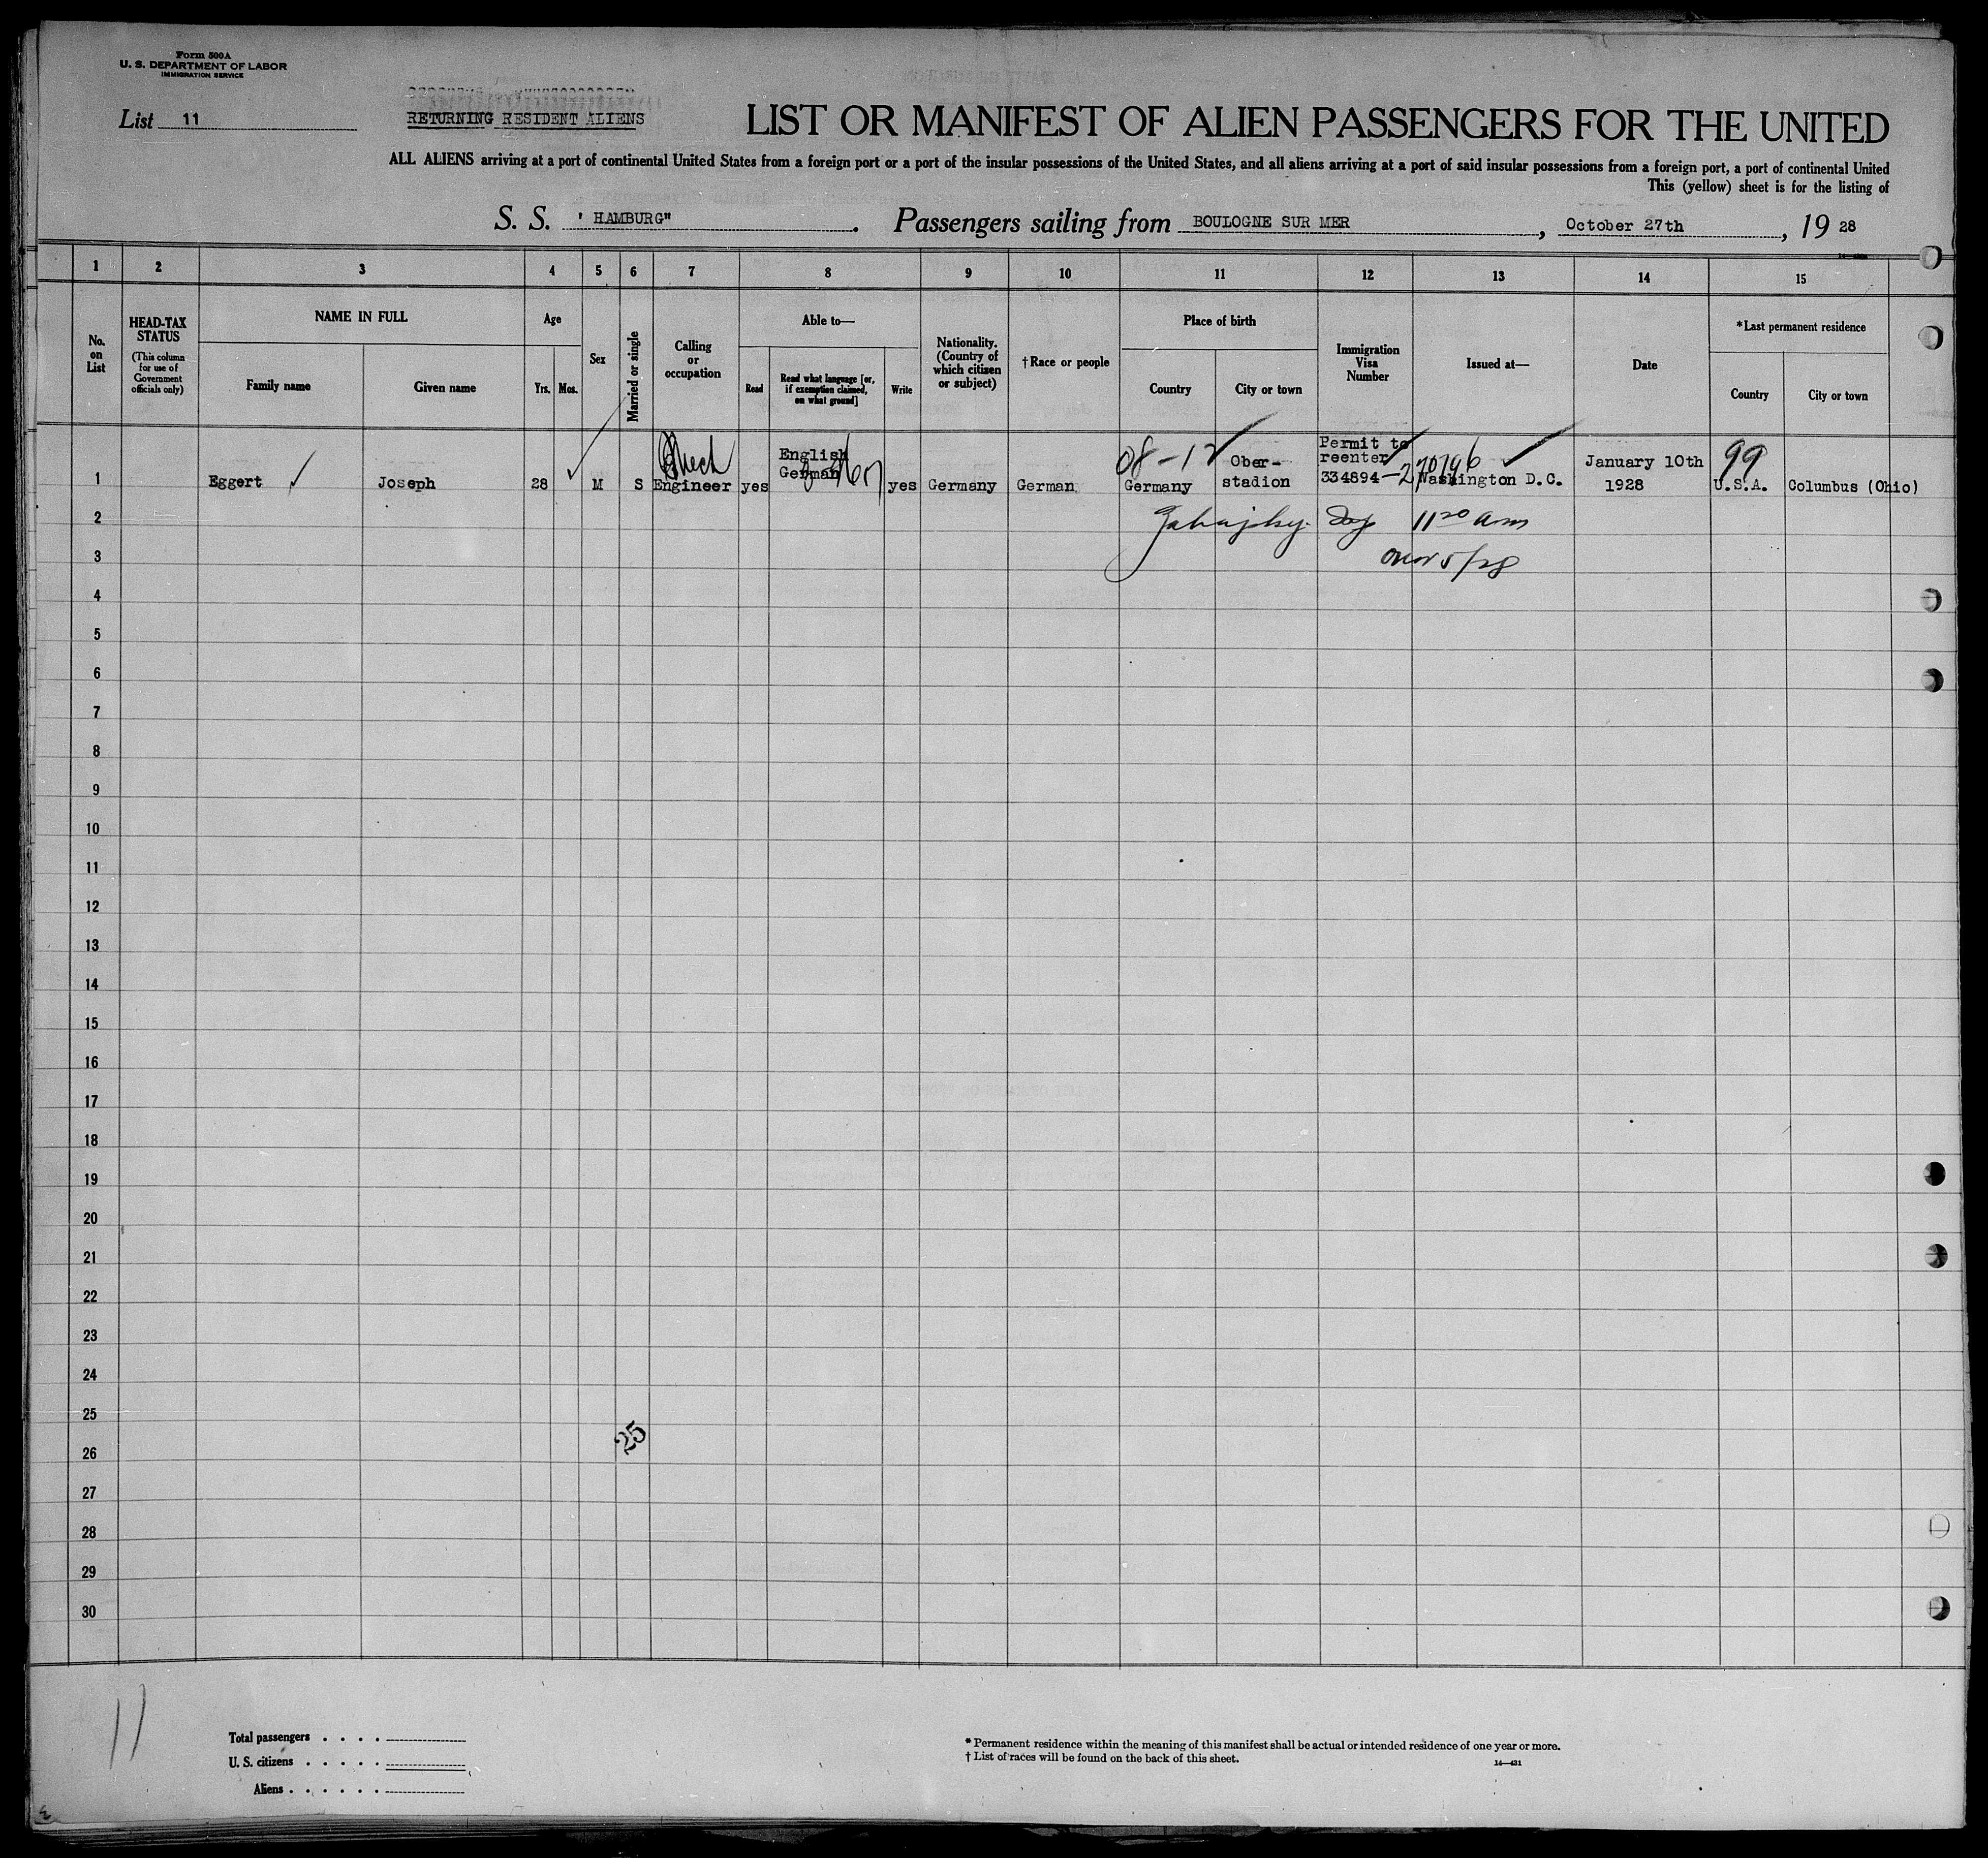 Form 500A
U. S. DEPARTMENT OF LABOR
IMMIGRATION SERVICE
List 11
RETURNING RESIDENT ALIENS
LIST OR MANIFEST OF ALIEN PASSENGERS FOR THE UNITED
ALL ALIENS arriving at a port of continental United States from a foreign port or a port of the insular possessions of the United States, and all aliens arriving at a port of said insular possessions from a foreign port, a port of continental United
This (yellow) sheet is for the listing of
S. S. ' HAMBURG" . Passengers sailing from BOULOGNE SUR MER , October 27th , 19 28
1 2 3 4 5 6 7 8 9 10 11 12 13 14 15
No. on List
HEAD-TAX STATUS
(This column for use of Government officials only)
NAME IN FULL
Family name
Given name
Age
Yrs. Mos.
Sex
Married or single
Calling or occupation
Able to—
Read
Read what language [or, if exemption claimed, on what ground]
Write
Nationality. (Country of which citizen or subject)
†Race or people
Place of birth
Country
City or town
Immigration Visa Number
Issued at—
Date
*Last permanent residence
Country
City or town
1 Eggert Joseph 28 M S Mech Engineer yes English German yes Germany German 08-12 Germany Ober-stadion Permit to reenter 334894 Washington D.C. January 10th 1928 99 U.S.A. Columbus (Ohio)
2 11 20 am
3
4
5
6
7
8
9
10
11
12
13
14
15
16
17
18
19
20
21
22
23
24
25
25
26
27
28
29
30
11
Total passengers . . . .
U. S. citizens . . . . .
Aliens . . . . . .
* Permanent residence within the meaning of this manifest shall be actual or intended residence of one year or more.
† List of races will be found on the back of this sheet.
14—431